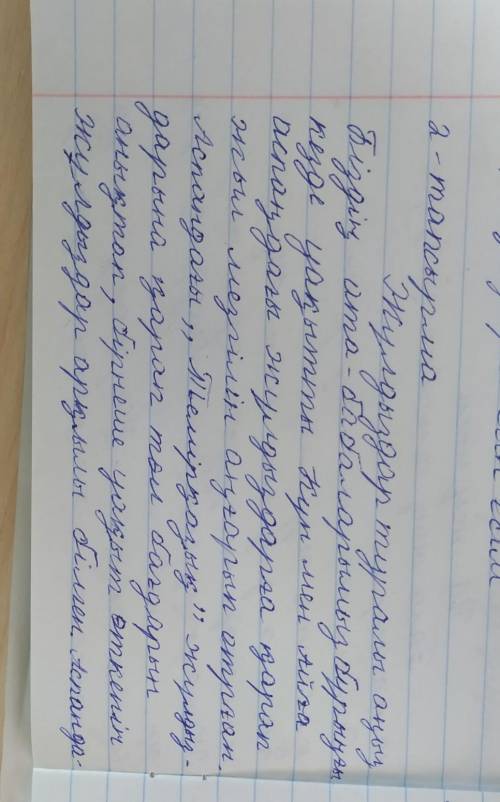 2-тапсырма
Жұлдыздар туралы аңыз
Біздің ата-бабаларымыз бұрынғы
кезде уақытты Күн мен Айға
аспандағы жұлдыздарға қарап
жыл мезгілін аңғарып отырған.
Аспандағы „Темірқазық" жұлдыз-
дарына қарап төл бағдарын
анықтап, бірнеше уақыт өткенін
жұлдыздар арқылы білген. Аспанда-